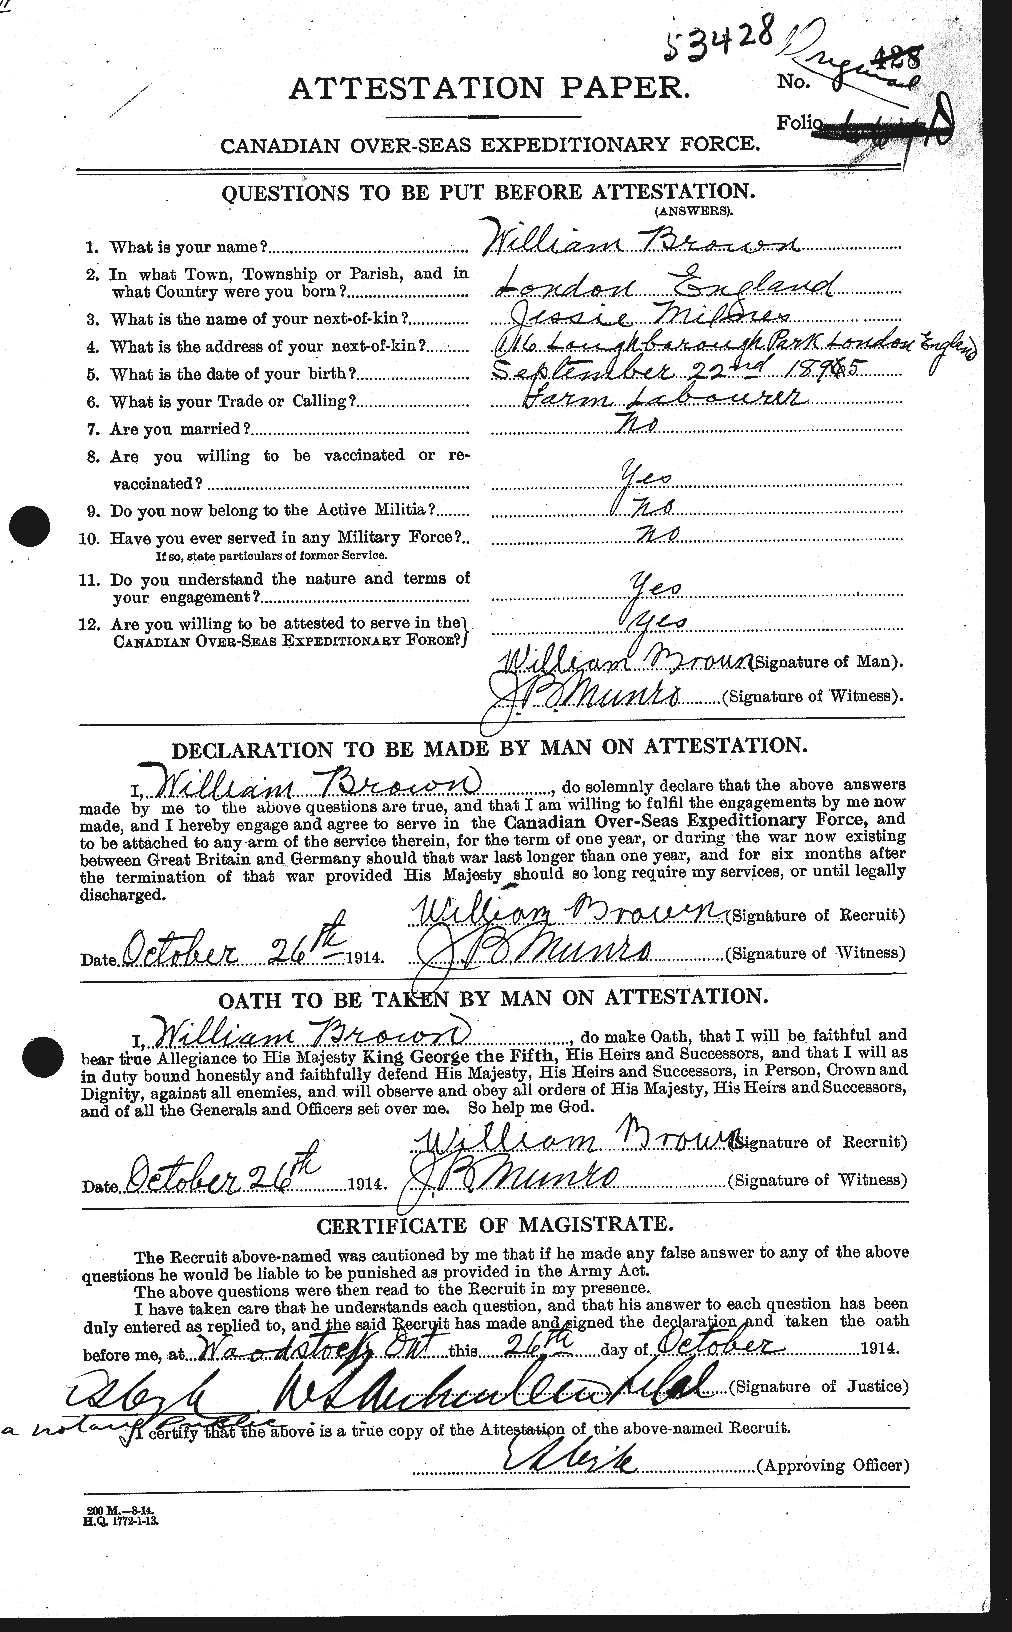 53428
Original
No. 428
ATTESTATION PAPER.
Folio.
CANADIAN OVER-SEAS EXPEDITIONARY FORCE.
QUESTIONS TO BE PUT BEFORE ATTESTATION.
(ANSWERS).
1. What is your name? William Brown
2. In what Town, Township or Parish, and in
what Country were you born? London England
3. What is the name of your next-of-kin? Jessie Milnes
4. What is the address of your next-of-kin? 116 Loughborough Park London England
5. What is the date of your birth? September 22nd 1895
6. What is your Trade or Calling? Farm Labourer
7. Are you married? No
8. Are you willing to be vaccinated or re-
vaccinated? Yes
9. Do you now belong to the Active Militia? No
10. Have you ever served in any Military Force? No
If so, state particulars of former Service.
11. Do you understand the nature and terms of
your engagement? Yes
12. Are you willing to be attested to serve in the
CANADIAN OVER-SEAS EXPEDITIONARY FORCE? Yes
William Brown (Signature of Man).
J B Munro (Signature of Witness).
DECLARATION TO BE MADE BY MAN ON ATTESTATION.
I, William Brown, do solemnly declare that the above answers
made by me to the above questions are true, and that I am willing to fulfil the engagements by me now
made, and I hereby engage and agree to serve in the Canadian Over-Seas Expeditionary Force, and
to be attached to any arm of the service therein, for the term of one year, or during the war now existing
between Great Britain and Germany should that war last longer than one year, and for six months after
the termination of that war provided His Majesty should so long require my services, or until legally
discharged.
William Brown (Signature of Recruit)
Date October 26th 1914. J B Munro (Signature of Witness)
OATH TO BE TAKEN BY MAN ON ATTESTATION.
I, William Brown, do make Oath, that I will be faithful and
bear true Allegiance to His Majesty King George the Fifth, His Heirs and Successors, and that I will as
in duty bound honestly and faithfully defend His Majesty, His Heirs and Successors, in Person, Crown and
Dignity, against all enemies, and will observe and obey all orders of His Majesty, His Heirs and Successors,
and of all the Generals and Officers set over me. So help me God.
William Brown (Signature of Recruit)
Date October 26th 1914. J B Munro (Signature of Witness)
CERTIFICATE OF MAGISTRATE.
The Recruit above-named was cautioned by me that if he made any false answer to any of the above
questions he would be liable to be punished as provided in the Army Act.
The above questions were then read to the Recruit in my presence.
I have taken care that he understands each question, and that his answer to each question has been
duly entered as replied to, and the said Recruit has made and signed the declaration and taken the oath
before me, at Woodstock Ont this 26th day of October 1914.
(Signature of Justice)
a notary Public
I certify that the above is a true copy of the Attestation of the above-named Recruit.
(Approving Officer)
200 M.—8-14.
H.Q. 1772-1-13.